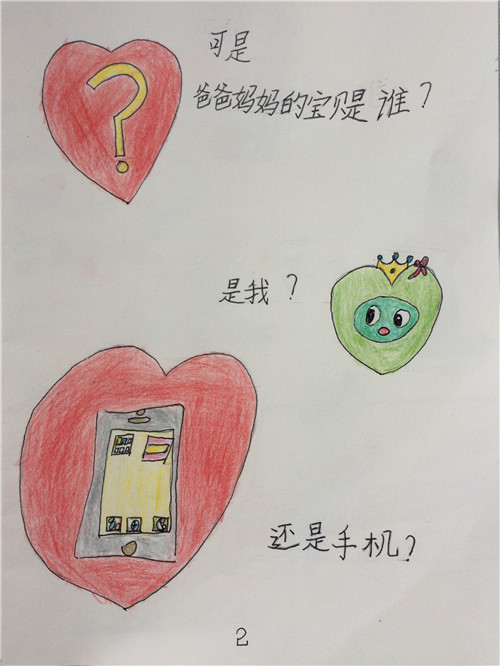 可是
爸爸妈妈的宝贝是谁？
是我？
还是手机？
2